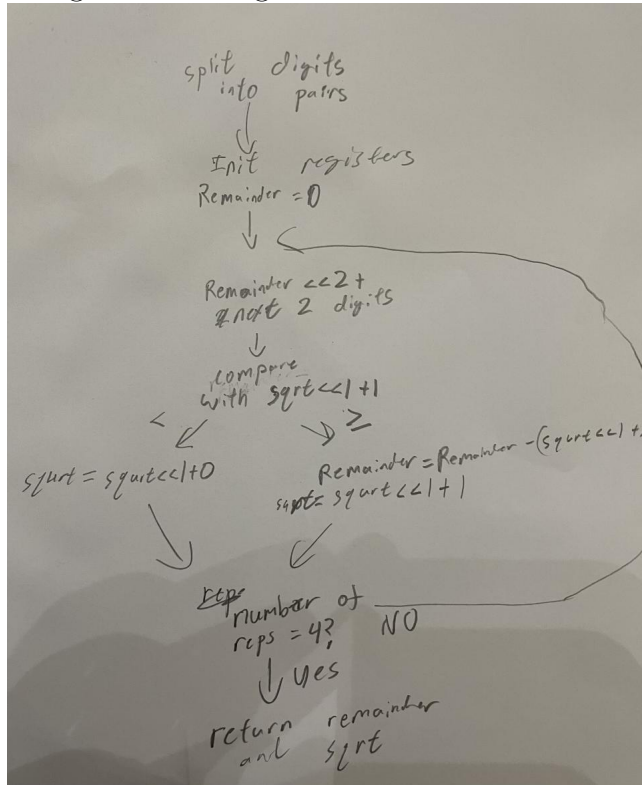 split digits
into pairs
Init registers
Remainder = 0
Remainder <<2 +
next 2 digits
compare
with sqrt<<1 +1
< ≥
squrt = squrt<<1+0
Remainder = Remainder - (squrt<<1 +
sqrt= squrt<<1 +1
number of
reps = 4? NO
yes
return remainder
and sqrt